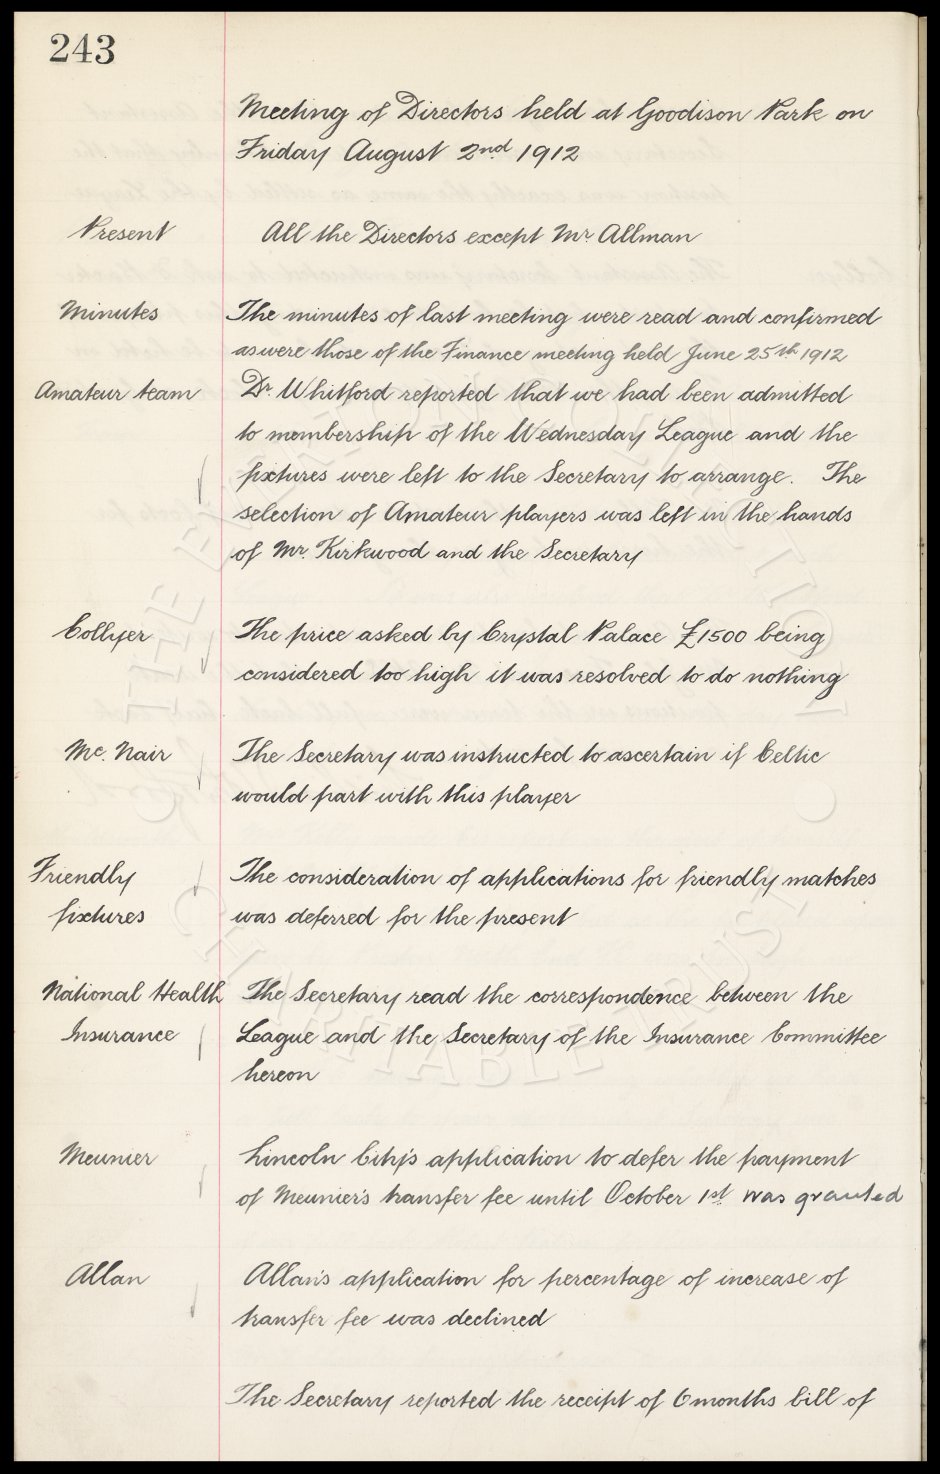 243
Meeting of Directors held at Goodison Park on
Friday August 2nd 1912
Present
All the Directors except Mr Allman
Minutes
The minutes of last meeting were read and confirmed
as were those of the Finance meeting held June 25th 1912
Amateur team
Dr. Whitford reported that we had been admitted
to membership of the Wednesday League and the
fixtures were left to the Secretary to arrange. The
selection of Amateur players was left in the hands
of Mr. Kirkwood and the Secretary
Collyer
The price asked by Crystal Palace £1500 being
considered too high it was resolved to do nothing
Mc. Nair
The Secretary was instructed to ascertain if Celtic
would part with this player
Friendly
fixtures
The consideration of applications for friendly matches
was deferred for the present
National Health
Insurance
The Secretary read the correspondence between the
League and the Secretary of the Insurance Committee
hereon
Meunier
Lincoln City's application to defer the payment
of Meunier's transfer fee until October 1st was granted
Allan
Allan's application for percentage of increase of
transfer fee was declined
The Secretary reported the receipt of 6 months bill of